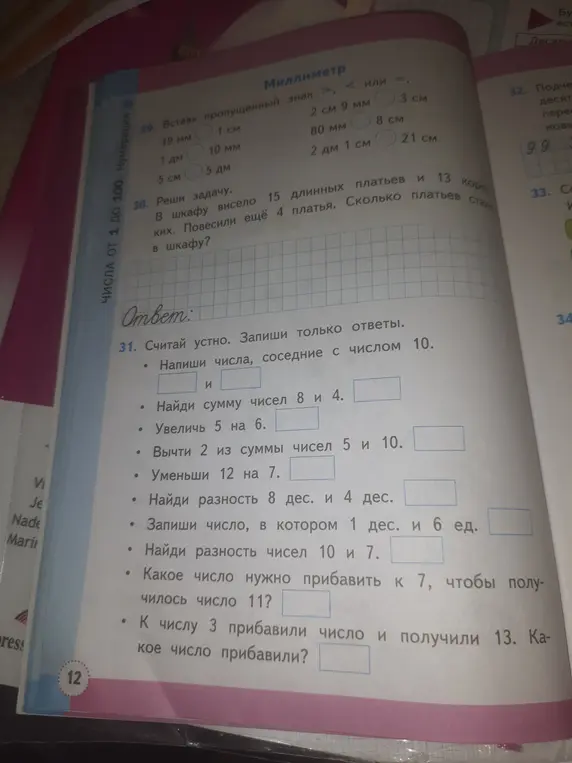 Миллиметр
29. Вставь пропущенный знак >, < или =.
10 мм 1 см
2 см 9 мм 3 см
1 дм 10 мм
80 мм 8 см
5 см 5 дм
2 дм 1 см 21 см
30. Реши задачу.
В шкафу висело 15 длинных платьев и 13 корот
ких. Повесили ещё 4 платья. Сколько платьев стало
в шкафу?
Ответ:
31. Считай устно. Запиши только ответы.
• Напиши числа, соседние с числом 10.
и
• Найди сумму чисел 8 и 4.
• Увеличь 5 на 6.
• Вычти 2 из суммы чисел 5 и 10.
• Уменьши 12 на 7.
• Найди разность 8 дес. и 4 дес.
• Запиши число, в котором 1 дес. и 6 ед.
• Найди разность чисел 10 и 7.
• Какое число нужно прибавить к 7, чтобы полу-
чилось число 11?
• К числу 3 прибавили число и получили 13. Ка-
кое число прибавили?
12
ЧИСЛА ОТ 1 ДО 100 Нумерация
32.
33.
34
99